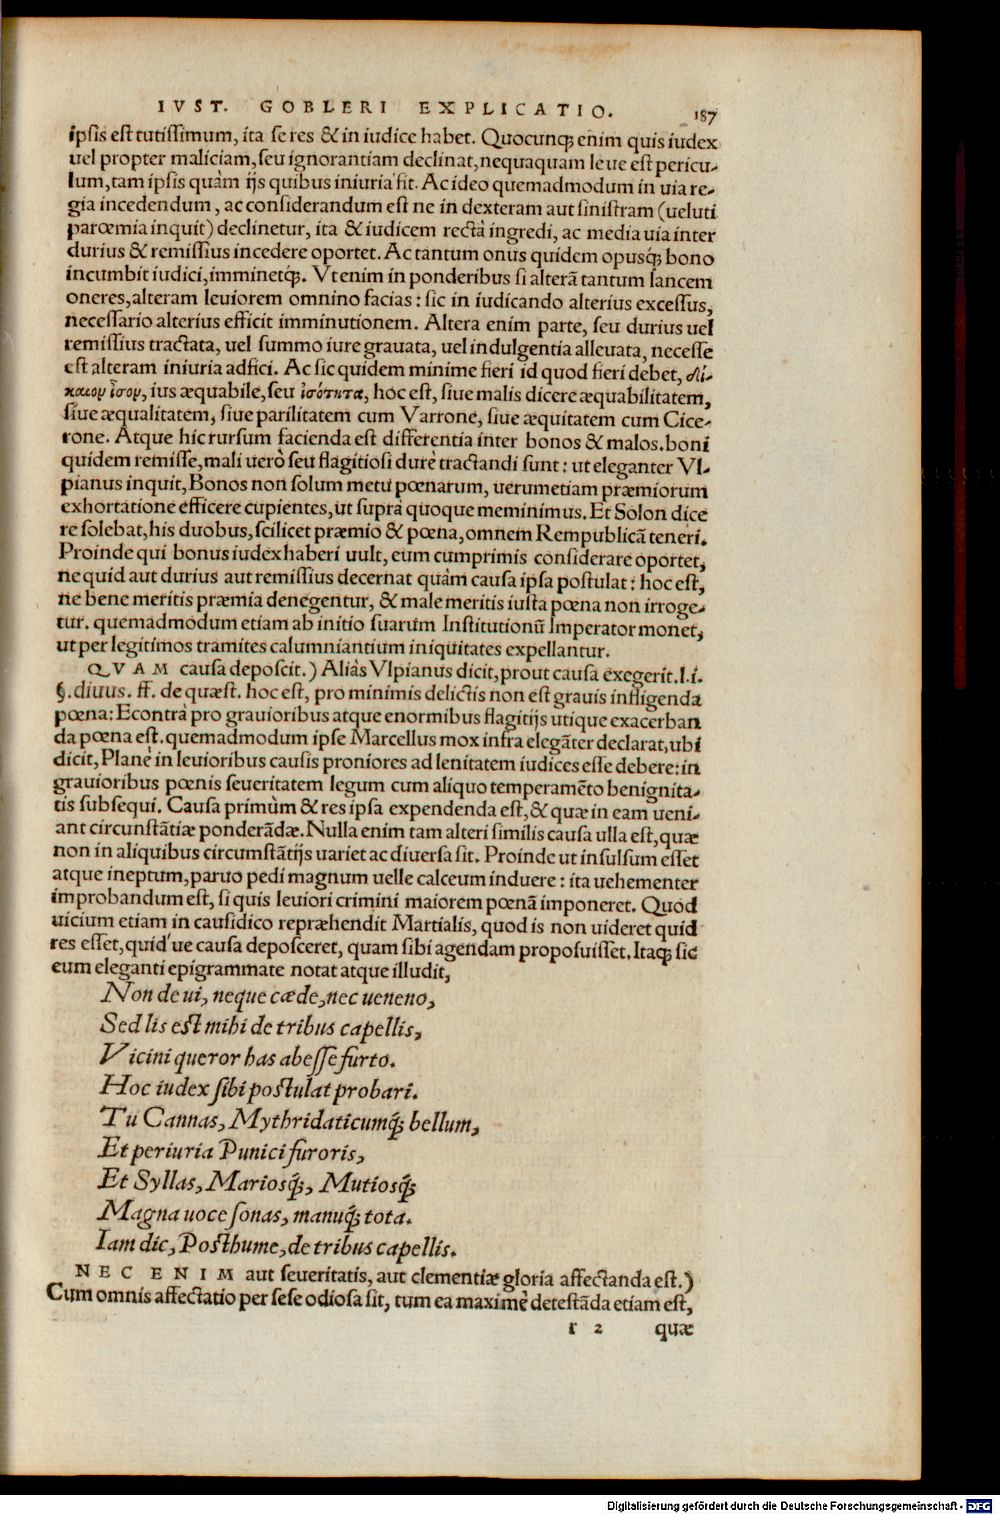 IVST. GOBLERI EXPLICATIO. 187
ipsis est tutissimum, ita se res & in iudice habet. Quocunq; enim quis iudex
uel propter maliciam, seu ignorantiam declinat, nequaquam leue est pericu-
lum, tam ipsis quàm ijs quibus iniuria fit. Ac ideo quemadmodum in uia re-
gia incedendum, ac considerandum est ne in dexteram aut sinistram (ueluti
parœmia inquit) declinetur, ita & iudicem rectà ingredi, ac media uia inter
durius & remissius incedere oportet. Ac tantum onus quidem opusq́; bono
incumbit iudici, imminetq́;. Vt enim in ponderibus si alterã tantum lancem
oneres, alteram leuiorem omnino facias: sic in iudicando alterius excessus,
necessario alterius efficit imminutionem. Altera enim parte, seu durius uel
remissius tractata, uel summo iure grauata, uel indulgentia alleuata, necesse
est alteram iniuria adfici. Ac sic quidem minime fieri id quod fieri debet, δί-
καιον ἴσον, ius æquabile, seu ἰσότητα, hoc est, siue malis dicere æquabilitatem,
siue æqualitatem, siue parilitatem cum Varrone, siue æquitatem cum Cice-
rone. Atque hic rursum facienda est differentia inter bonos & malos. boni
quidem remisse, mali uerò seu flagitiosi durè tractandi sunt: ut eleganter Vl-
pianus inquit, Bonos non solum metu pœnarum, uerumetiam præmiorum
exhortatione efficere cupientes, ut suprà quoque meminimus. Et Solon dice
re solebat, his duobus, scilicet præmio & pœna, omnem Rempublicã teneri.
Proinde qui bonus iudex haberi uult, eum cumprimis considerare oportet,
ne quid aut durius aut remissius decernat quàm causa ipsa postulat: hoc est,
ne bene meritis præmia denegentur, & male meritis iusta pœna non irroge-
tur. quemadmodum etiam ab initio suarum Institutionũ Imperator monet,
ut per legitimos tramites calumniantium iniquitates expellantur.
QVAM causa deposcit.) Aliàs Vlpianus dicit, prout causa exegerit. l. i.
§. diuus. ff. de quæst. hoc est, pro minimis delictis non est grauis infligenda
pœna: Econtrà pro grauioribus atque enormibus flagitijs utique exacerban
da pœna est. quemadmodum ipse Marcellus mox infra elegãter declarat, ubi
dicit, Planè in leuioribus causis proniores ad lenitatem iudices esse debere: in
grauioribus pœnis seueritatem legum cum aliquo temperamẽto benignita-
tis subsequi. Causa primùm & res ipsa expendenda est, & quæ in eam ueni-
ant circunstãtiæ ponderãdæ. Nulla enim tam alteri similis causa ulla est, quæ
non in aliquibus circumstãtijs uariet ac diuersa sit. Proinde ut insulsum esset
atque ineptum, paruo pedi magnum uelle calceum induere: ita uehementer
improbandum est, si quis leuiori crimini maiorem pœnã imponeret. Quod
uicium etiam in causidico repræhendit Martialis, quod is non uideret quid
res esset, quid'ue causa deposceret, quam sibi agendam proposuisset. Itaq; sic
eum eleganti epigrammate notat atque illudit,
Non de ui, neque cæde, nec ueneno,
Sed lis est mihi de tribus capellis,
Vicini queror has abesse furto.
Hoc iudex sibi postulat probari.
Tu Cannas, Mythridaticumq́; bellum,
Et periuria Punici furoris,
Et Syllas, Mariosq́;, Mutiosq́;
Magna uoce sonas, manuq́; tota.
Iam dic, Posthume, de tribus capellis.
NEC ENIM aut seueritatis, aut clementiæ gloria affectanda est.)
Cum omnis affectatio per sese odiosa sit, tum ea maximè detestãda etiam est,
r 2 quæ
Digitalisierung gefördert durch die Deutsche Forschungsgemeinschaft - DFG